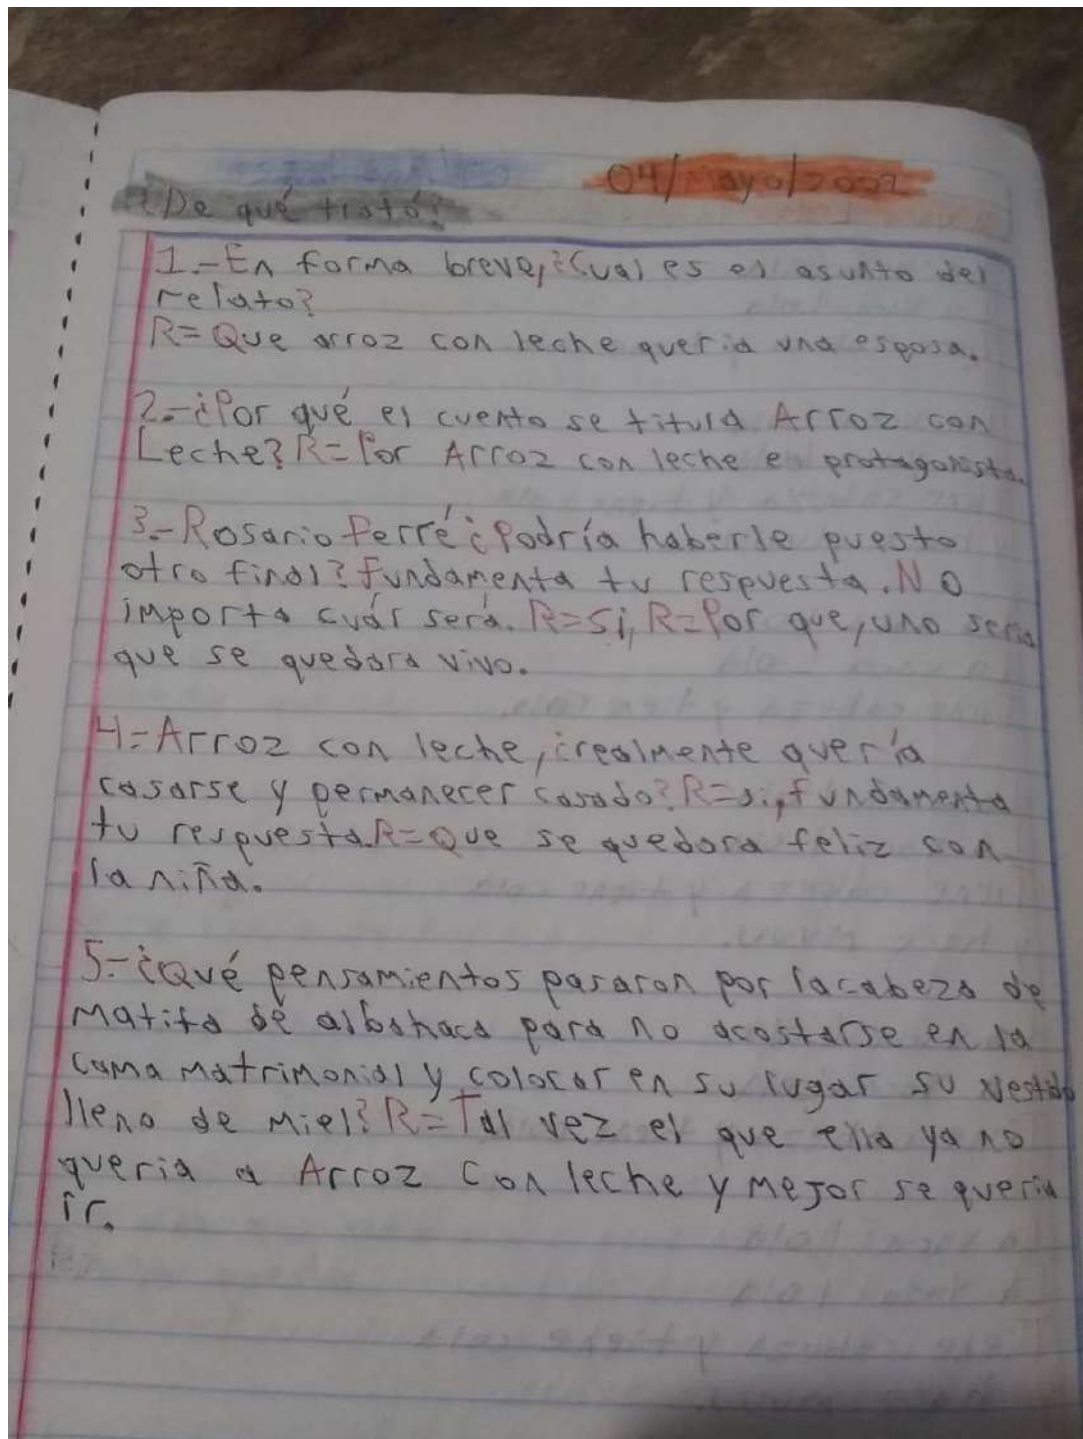 04/mayo/2022
¿De qué trató?
1.-En forma breve,¿Cual es el asunto del
relato?
R=Que arroz con leche queria una esposa.
2.-¿Por qué el cuento se titula Arroz con
Leche? R=Por Arroz con leche e protagonista.
3.-Rosario Ferré ¿Podría haberle puesto
otro final? fundamenta tu respuesta. No
importa cuál será. R=Si, R=Por que, uno seria
que se quedara vivo.
4.-Arroz con leche, ¿realmente quería
casarse y permanecer casado? R=si, fundamenta
tu respuesta. R=Que se quedara feliz con
la niña.
5.-¿Qué pensamientos pasaron por la cabeza de
Matita de albahaca para no acostarse en la
cama matrimonial y colocar en su lugar su vestido
lleno de miel? R=Tal vez el que ella ya no
queria a Arroz con leche y mejor se queria
ir.